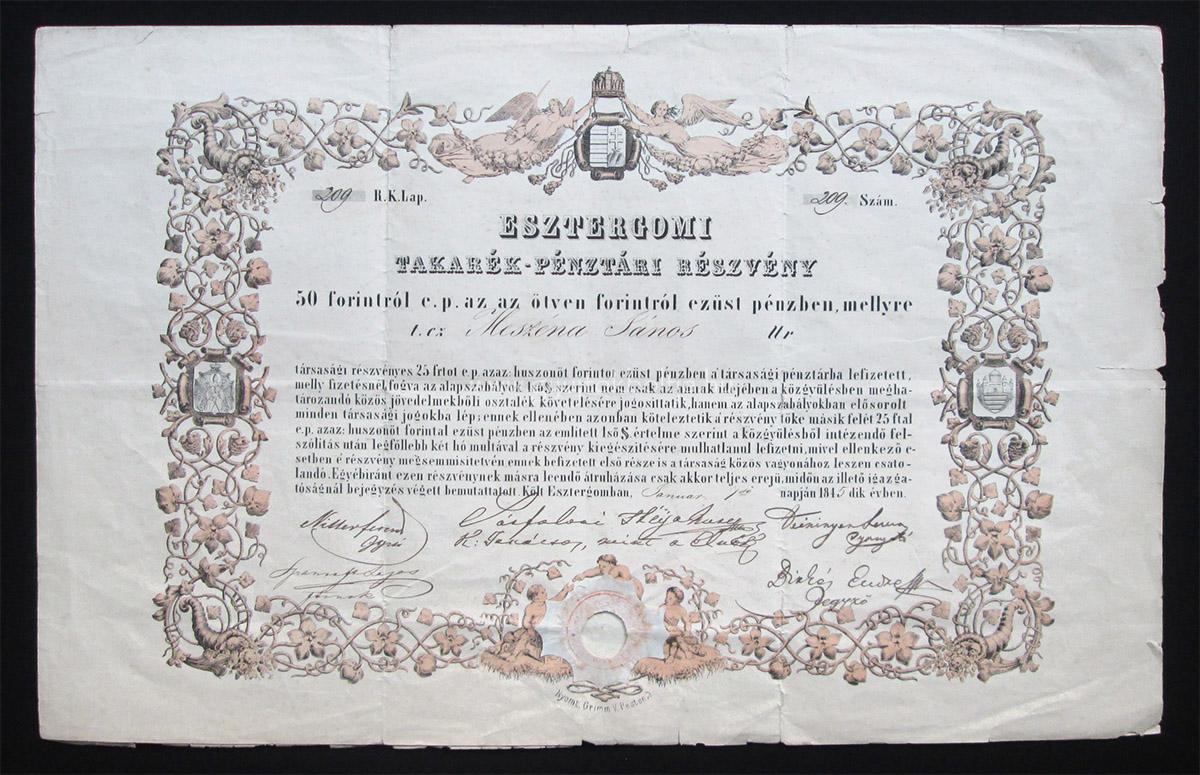 209 R.K.Lap.
209. Szám.
ESZTERGOMI
TAKARÉK-PÉNZTÁRI RÉSZVÉNY
50 forintról e.p. az az ötven forintról ezüst pénzben, mellyre
t.cz Meszéna János Ur
társasági részvényes 25 frtot e.p. azaz: huszonöt forintot ezüst pénzben a társasági pénztárba lefizetett,
melly fizetésnél fogva az alapszabályok 1ső §. szerint nem csak az annak idejében a közgyülésben megha-
tározandó közös jövedelmekbőli osztalék követelésére jogosittatik, hanem az alapszabályokban elősorolt
minden társasági jogokba lép; ennek ellenében azonban köteleztetik a' részvény tőke másik felét 25 ftal
e.p. azaz: huszonöt forintal ezüst pénzben az emlitett 1ső §. értelme szerint a közgyülésből intézendő fel-
szólitás után legföllebb két hó multával a részvény kiegészitésére mulhatlanul lefizetni, mivel ellenkező e-
setben é részvény megsemmisitetvén, ennek befizetett első része is a társaság közös vagyonához leszen csato-
landó. Egyébiránt ezen részvénynek másra leendő átruházása csak akkor teljes erejü, midőn az illető igazga-
tóságnál bejegyzés végett bemutattatott. Költ Esztergomban, Januar 1ső napján 1845 dik évben.
K: Takácsy, mint a
Endre
Jegyző
Nyomt. Grimm V. Pesten